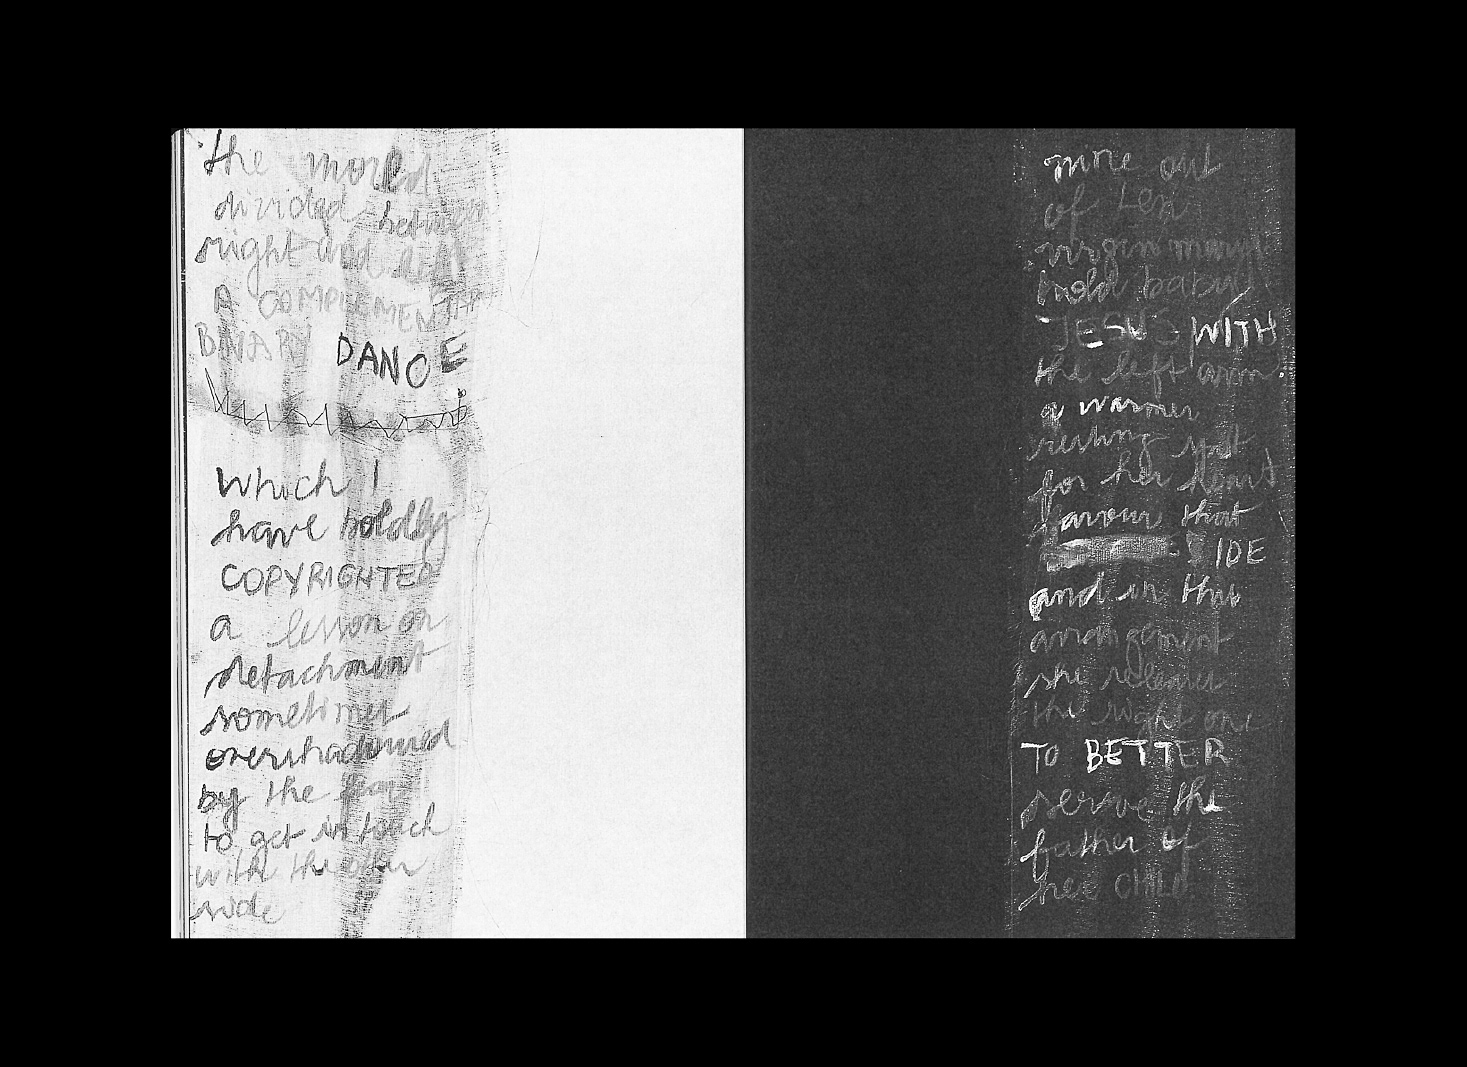 the world
divided between
right and left
A COMPLEMENTAR
BINARY DANCE
Which I
have boldly
COPYRIGHTED
a lesson on
detachment
sometimes
overshadowed
by the fear
to get in touch
with the other
side
nine out
of ten
virgin marys
hold baby
JESUS WITH
the left arm.
a warmer
resting spot
for her heart
favours that
SIDE
and in that
arrangement
she releases
the right one
TO BETTER
serve the
father of
her CHILD